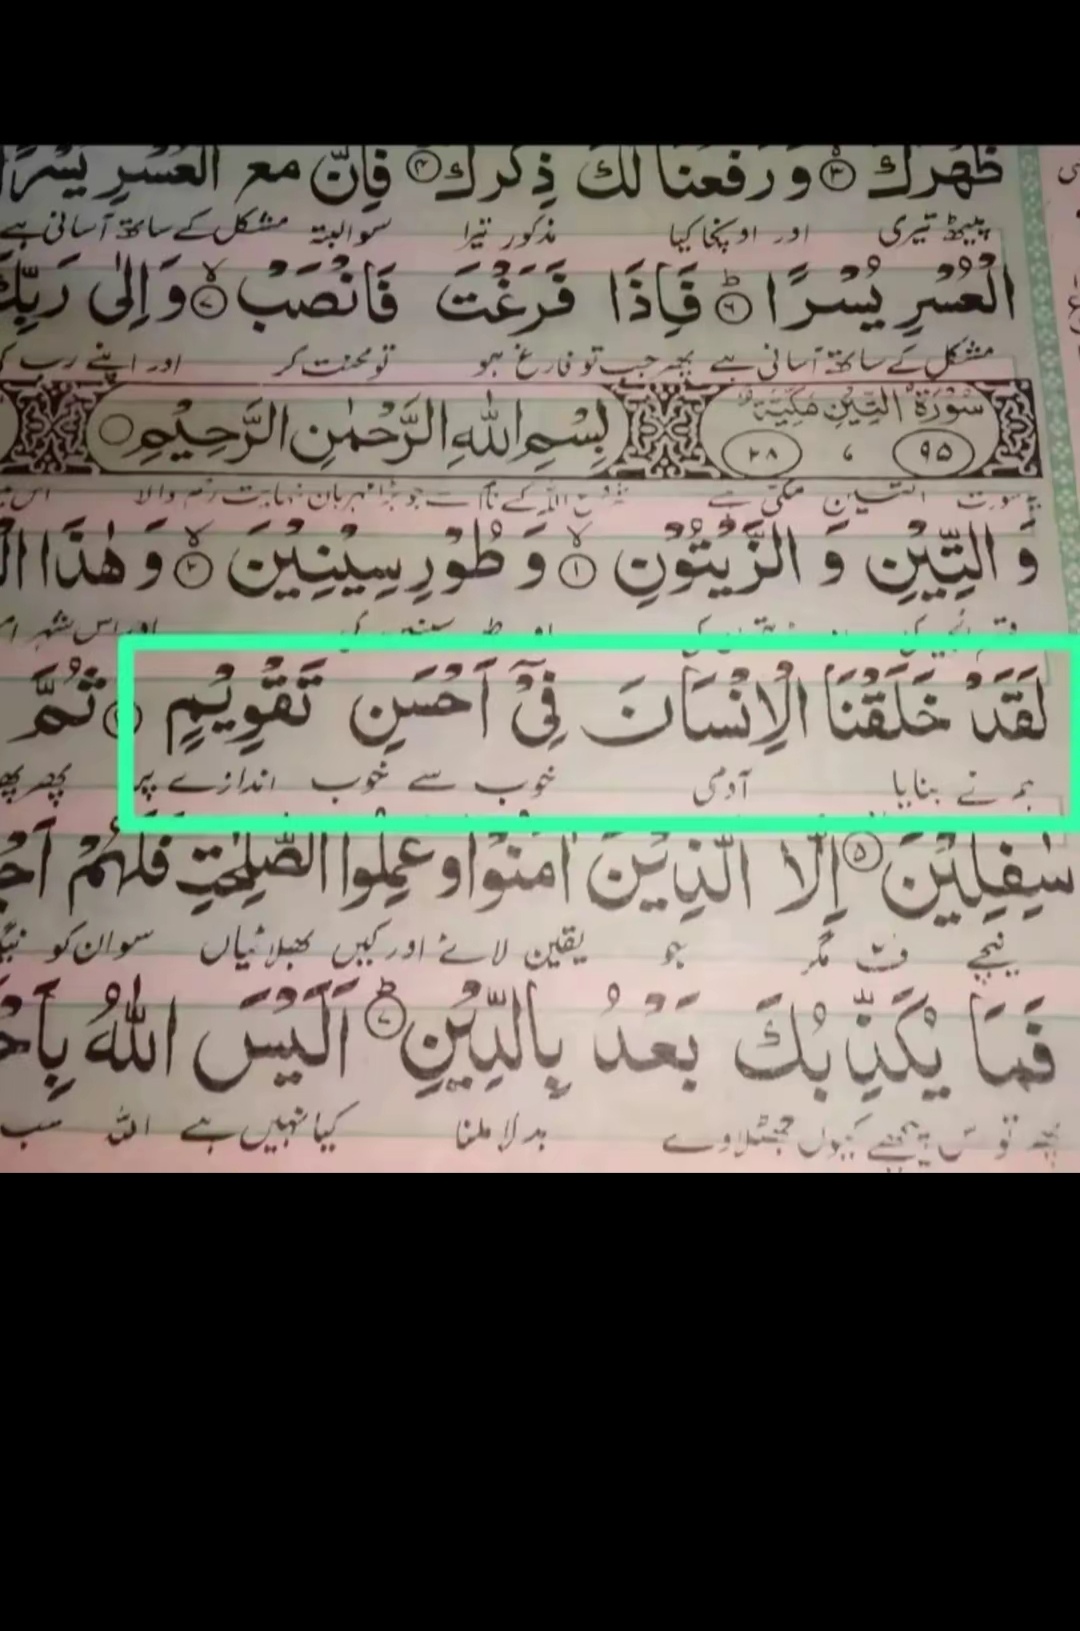 ظَهْرَكَ ۝۳ وَ رَفَعْنَا لَكَ ذِكْرَكَ ۝۴ فَاِنَّ مَعَ الْعُسْرِ يُسْرًا
پیٹھ تیری اور اونچا کیا مذکور تیرا سو البتہ مشکل کے ساتھ آسانی ہے
الْعُسْرِ يُسْرًا ۝۶ فَاِذَا فَرَغْتَ فَانْصَبْ ۝۷ وَ اِلٰى رَبِّكَ
مشکل کے ساتھ آسانی ہے پھر جب تو فارغ ہو تو محنت کر اور اپنے رب
سُوْرَةُ التِّيْنِ مَكِّيَّةٌ ۹۵ ۲۸ بِسْمِ اللّٰهِ الرَّحْمٰنِ الرَّحِيْمِ
مکی ہے شروع اللہ کے نام سے جو بڑا مہربان نہایت رحم والا
وَ التِّيْنِ وَ الزَّيْتُوْنِ ۝۱ وَ طُوْرِ سِيْنِيْنَ ۝۲ وَ هٰذَا
اور اس شہر
لَقَدْ خَلَقْنَا الْاِنْسَانَ فِيْۤ اَحْسَنِ تَقْوِيْمٍ ۝۴ ثُمَّ
ہم نے بنایا آدمی خوب سے خوب اندازے پر پھر
سٰفِلِيْنَ ۝۵ اِلَّا الَّذِيْنَ اٰمَنُوْا وَ عَمِلُوا الصّٰلِحٰتِ فَلَهُمْ
نیچے ف مگر جو یقین لائے اور کیں بھلائیاں سو ان کو
فَمَا يُكَذِّبُكَ بَعْدُ بِالدِّيْنِ ۝۷ اَلَيْسَ اللّٰهُ
پھر تو اس پیچھے کیوں جھٹلاوے بدلا ملنا کیا نہیں ہے اللہ سب